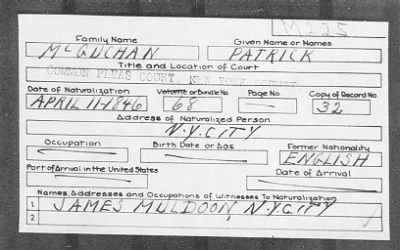 M225
Family Name Given Name or Names
McGUCHAN PATRICK
Title and Location of Court
COMMON PLEAS COURT, NEW YORK COUNTY
Date of Naturalization Volume or Bundle No Page No. Copy of Record No
APRIL 11-1846 68 32
Address of Naturalized Person
N.Y.CITY
Occupation Birth Date or Age Former Nationality
ENGLISH
Port of Arrival in the United States Date of Arrival
Names, Addresses and Occupations of Witnesses To Naturalization
1 JAMES MULDOON, N.Y.CITY
2